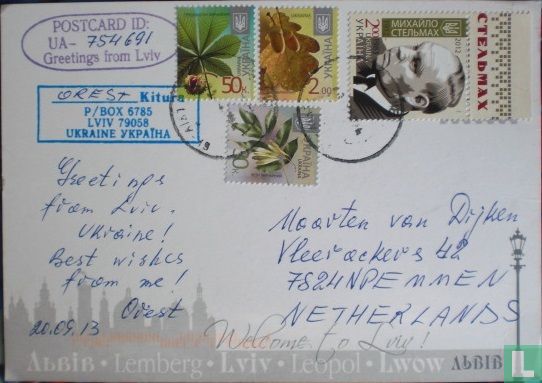 POSTCARD ID:
UA- 754691
Greetings from Lviv
OREST Kitura
P/BOX 6785
LVIV 79058
UKRAINE УКРАЇНА
50к
УКРАЇНА
УКРАЇНА
2.00
УКРАЇНА
МИХАЙЛО
СТЕЛЬМАХ
2012
2.00
УКРАЇНА
СТЕЛЬМАХ
Greetings
from Lviv.
Ukraine!
Best wishes
from me!
Orest
20.09.13
Maarten van Dijken
Vleerackers 42
7824NP EMMEN
NETHERLANDS
Welcome to Lviv!
Львів · Lemberg · Lviv · Leopol · Lwow
ЛЬВІВ